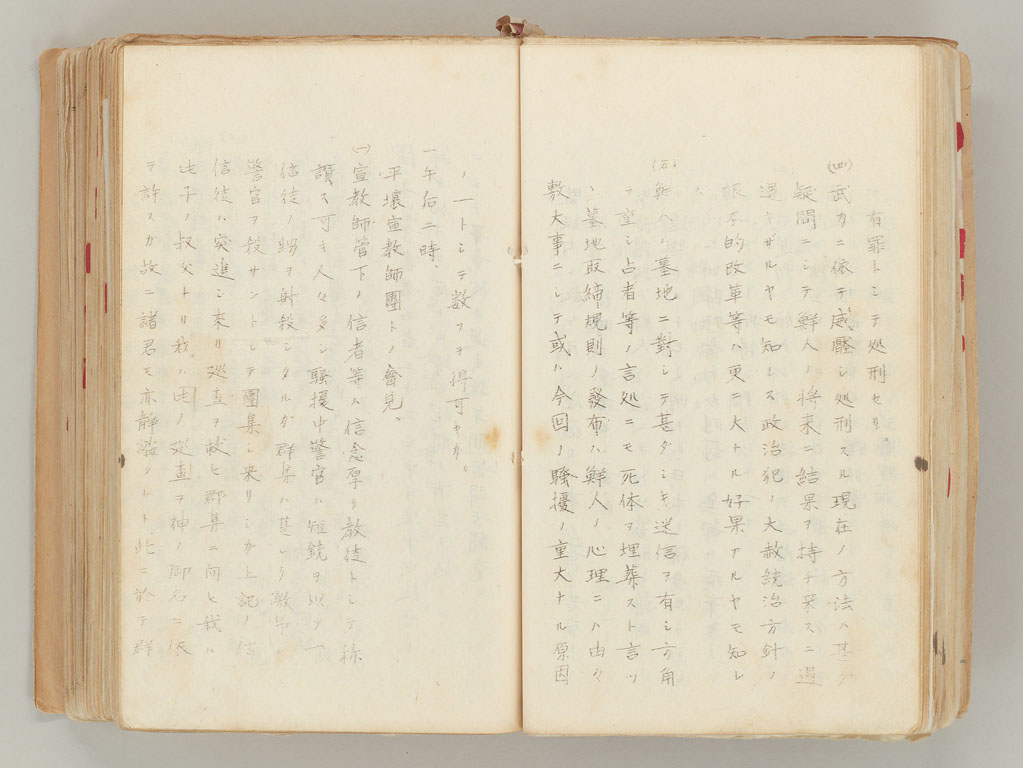 有罪トシテ処刑セリ
(四)武力ニ依テ威壓シ処刑スル現在ノ方法ハ甚ダ
疑問ニシテ鮮人ノ将来ニ結果ヲ持チ来スニ過
過ギザルヤモ知レズ政治犯ノ大赦統治方針ノ
根本的改革等ハ更ニ大ナル好果ナルヤモ知レ
(五)鮮人ハ墓地ニ對シテ甚ダシキ迷信ヲ有シ方角
ヲ重シ占者等ノ言処ニモ死体ヲ埋葬スト言ツ
墓地取締規則ノ發布ハ鮮人ノ心理ニハ由々
敷大事ニシテ或ハ今回ノ騒擾ノ重大ナル原因
ノ一トシテ数ヲ得可キカ。
一午后二時、
平壌宣教師團トノ會見。
(一)宣教師管下ノ信者等ハ信念厚ク教徒トシテ称
讃ス可キ人々多シ騒擾中警官ハ短銃ヲ以テ一
信徒ノ甥ヲ射殺シタルガ群集ハ甚シク激昂シ
警官ヲ殺サントシテ團集シ来リシガ上記ノ信
信徒ハ突進シ来リ巡査ヲ救ヒ群集ニ向ヒ我ハ
此子ノ叔父ナリ我ハ此ノ巡査ヲ神ノ御名ニ依
テ許スガ故ニ諸君モ亦静謐タレト此ニ於テ群